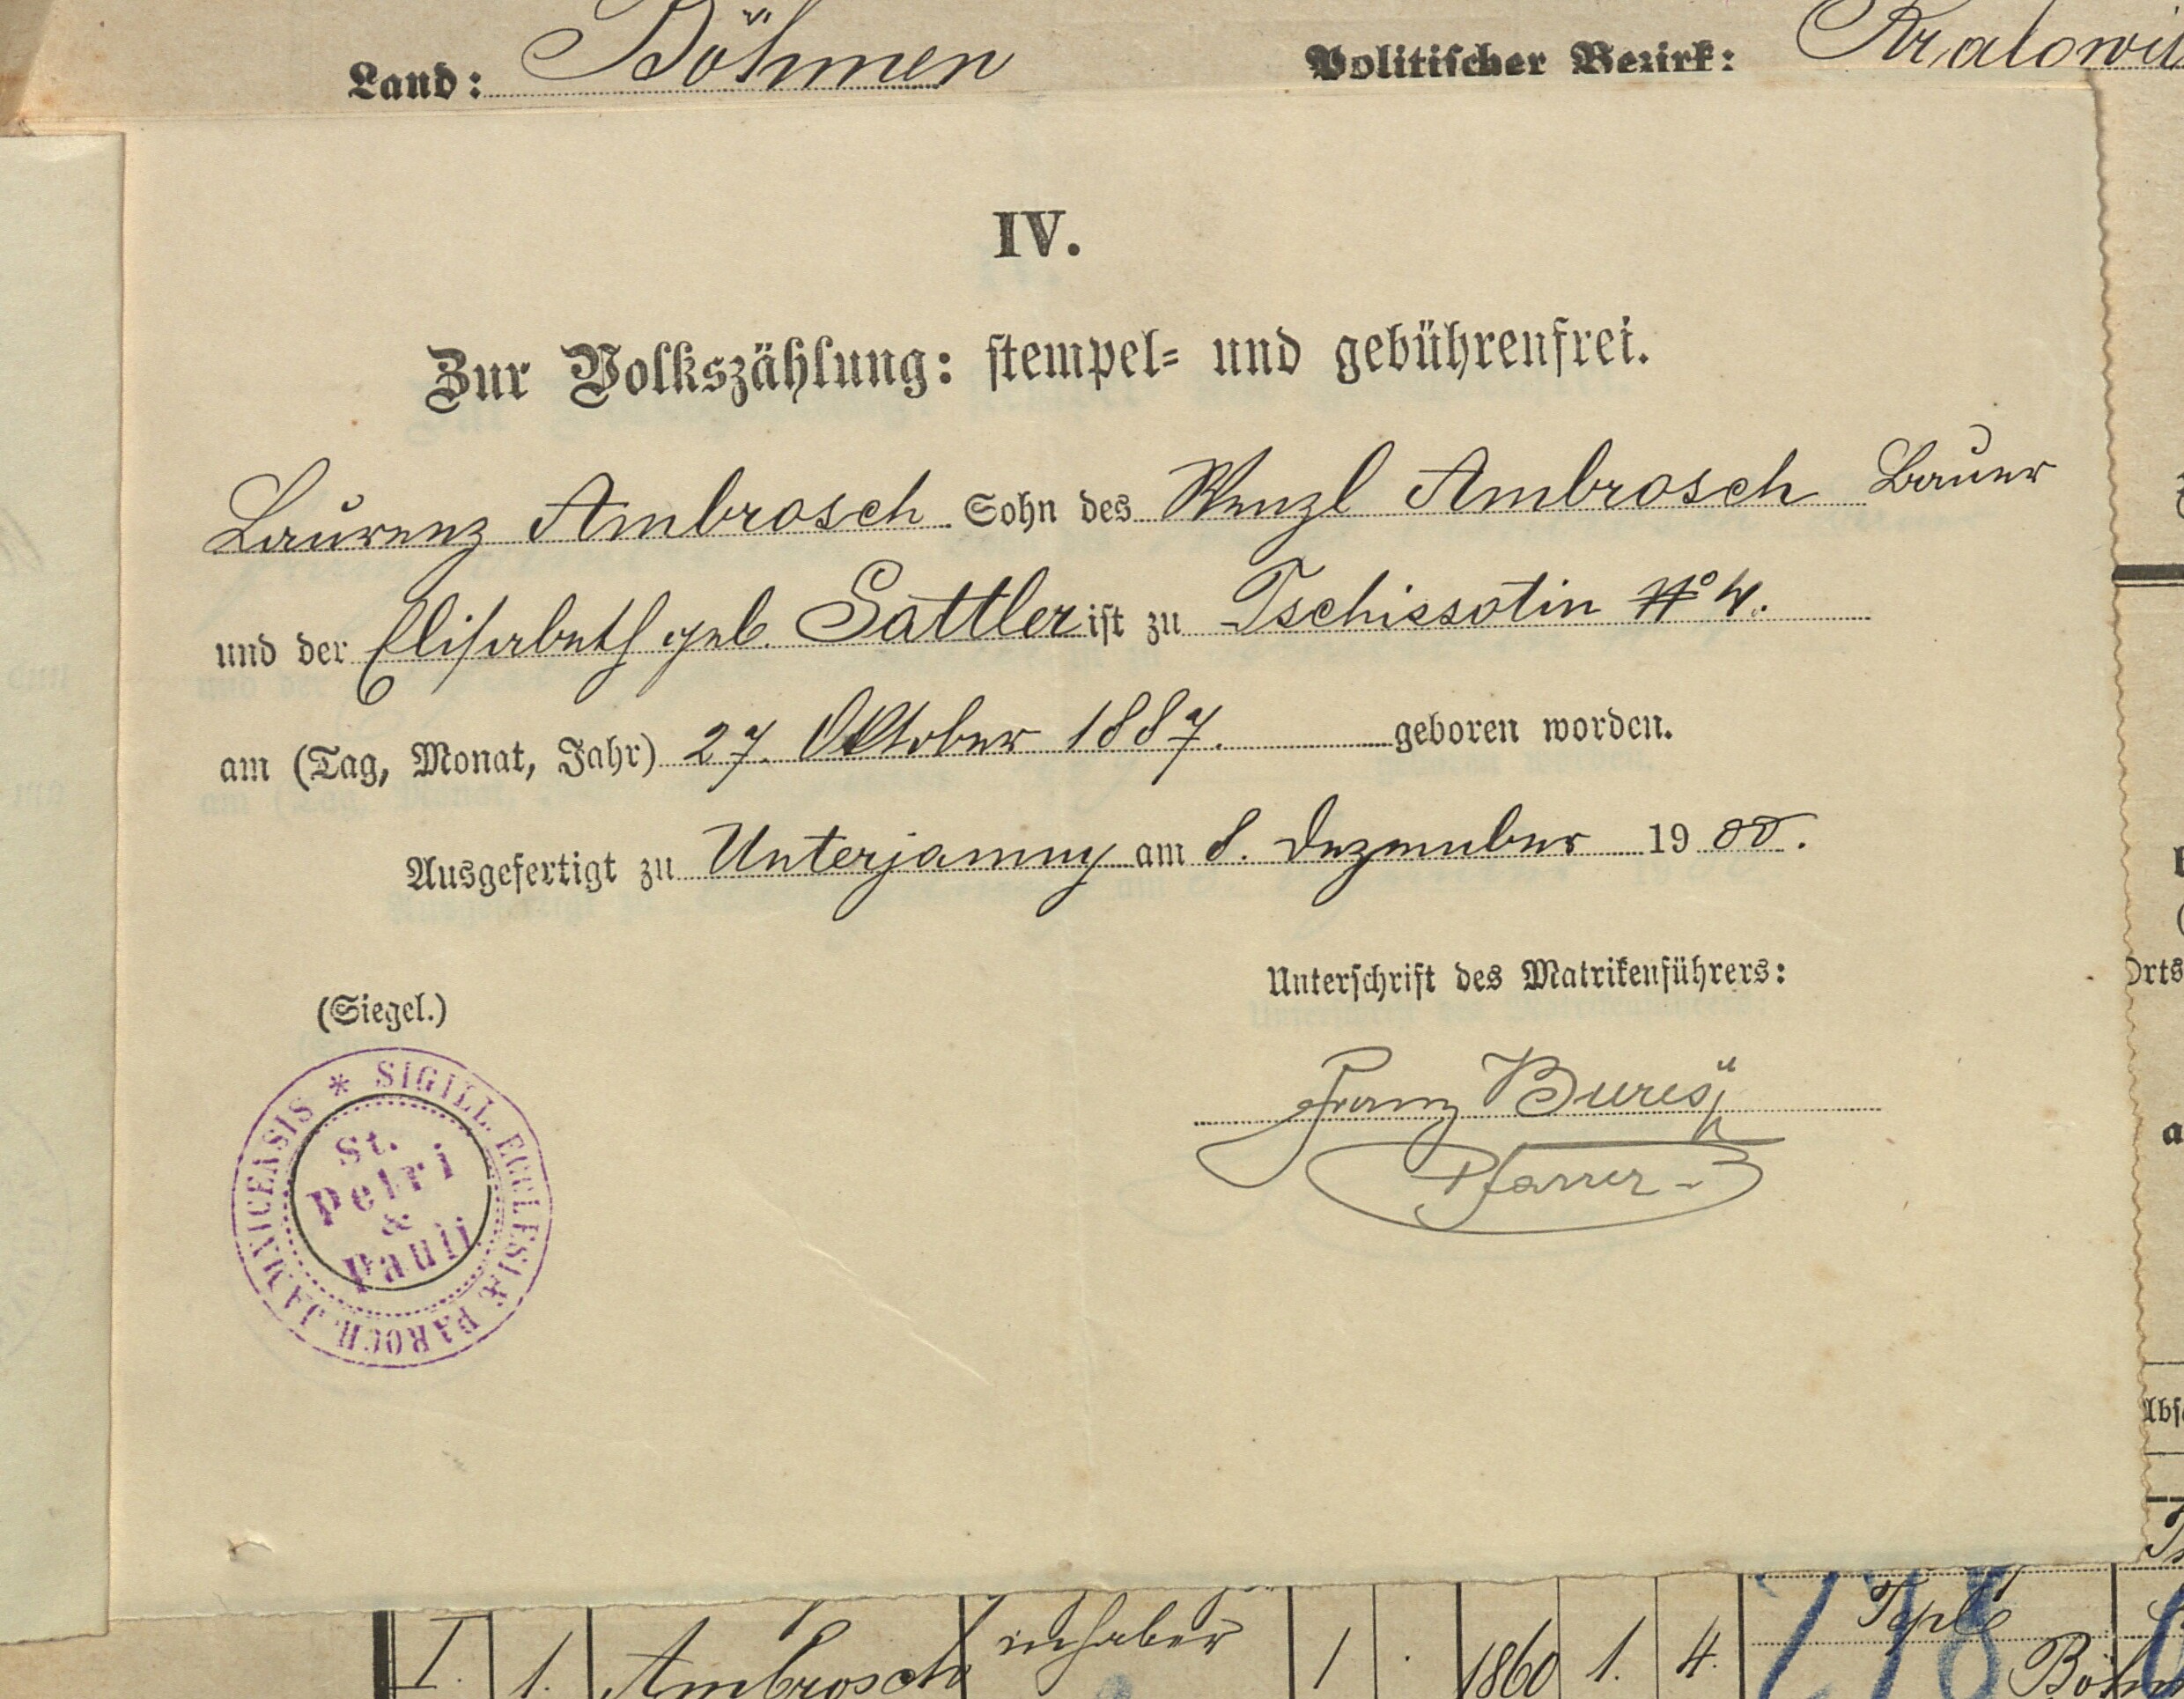 Land: Böhmen Politischer Bezirk: Kralowit
IV.
Zur Volkszählung: stempel- und gebührenfrei.
Laurenz Ambrosch Sohn des Wenzl Ambrosch Bauer
und der Elisabeth geb. Sattler ist zu Tschissotin No 4.
am (Tag, Monat, Jahr) 27. Oktober 1887. geboren worden.
Ausgefertigt zu Unterjamny am 8. Dezember 1900.
Unterschrift des Matrikenführers:
(Siegel.)
Franz Bureš
Pfarrer
* SIGILL. ECCLESIÆ PAROCH. JAMNICENSIS
St.
Petri
&
Pauli
Orts
I. 1. Ambrosch inhaber 1 . 1860 1. 4. Tepl
Böhm